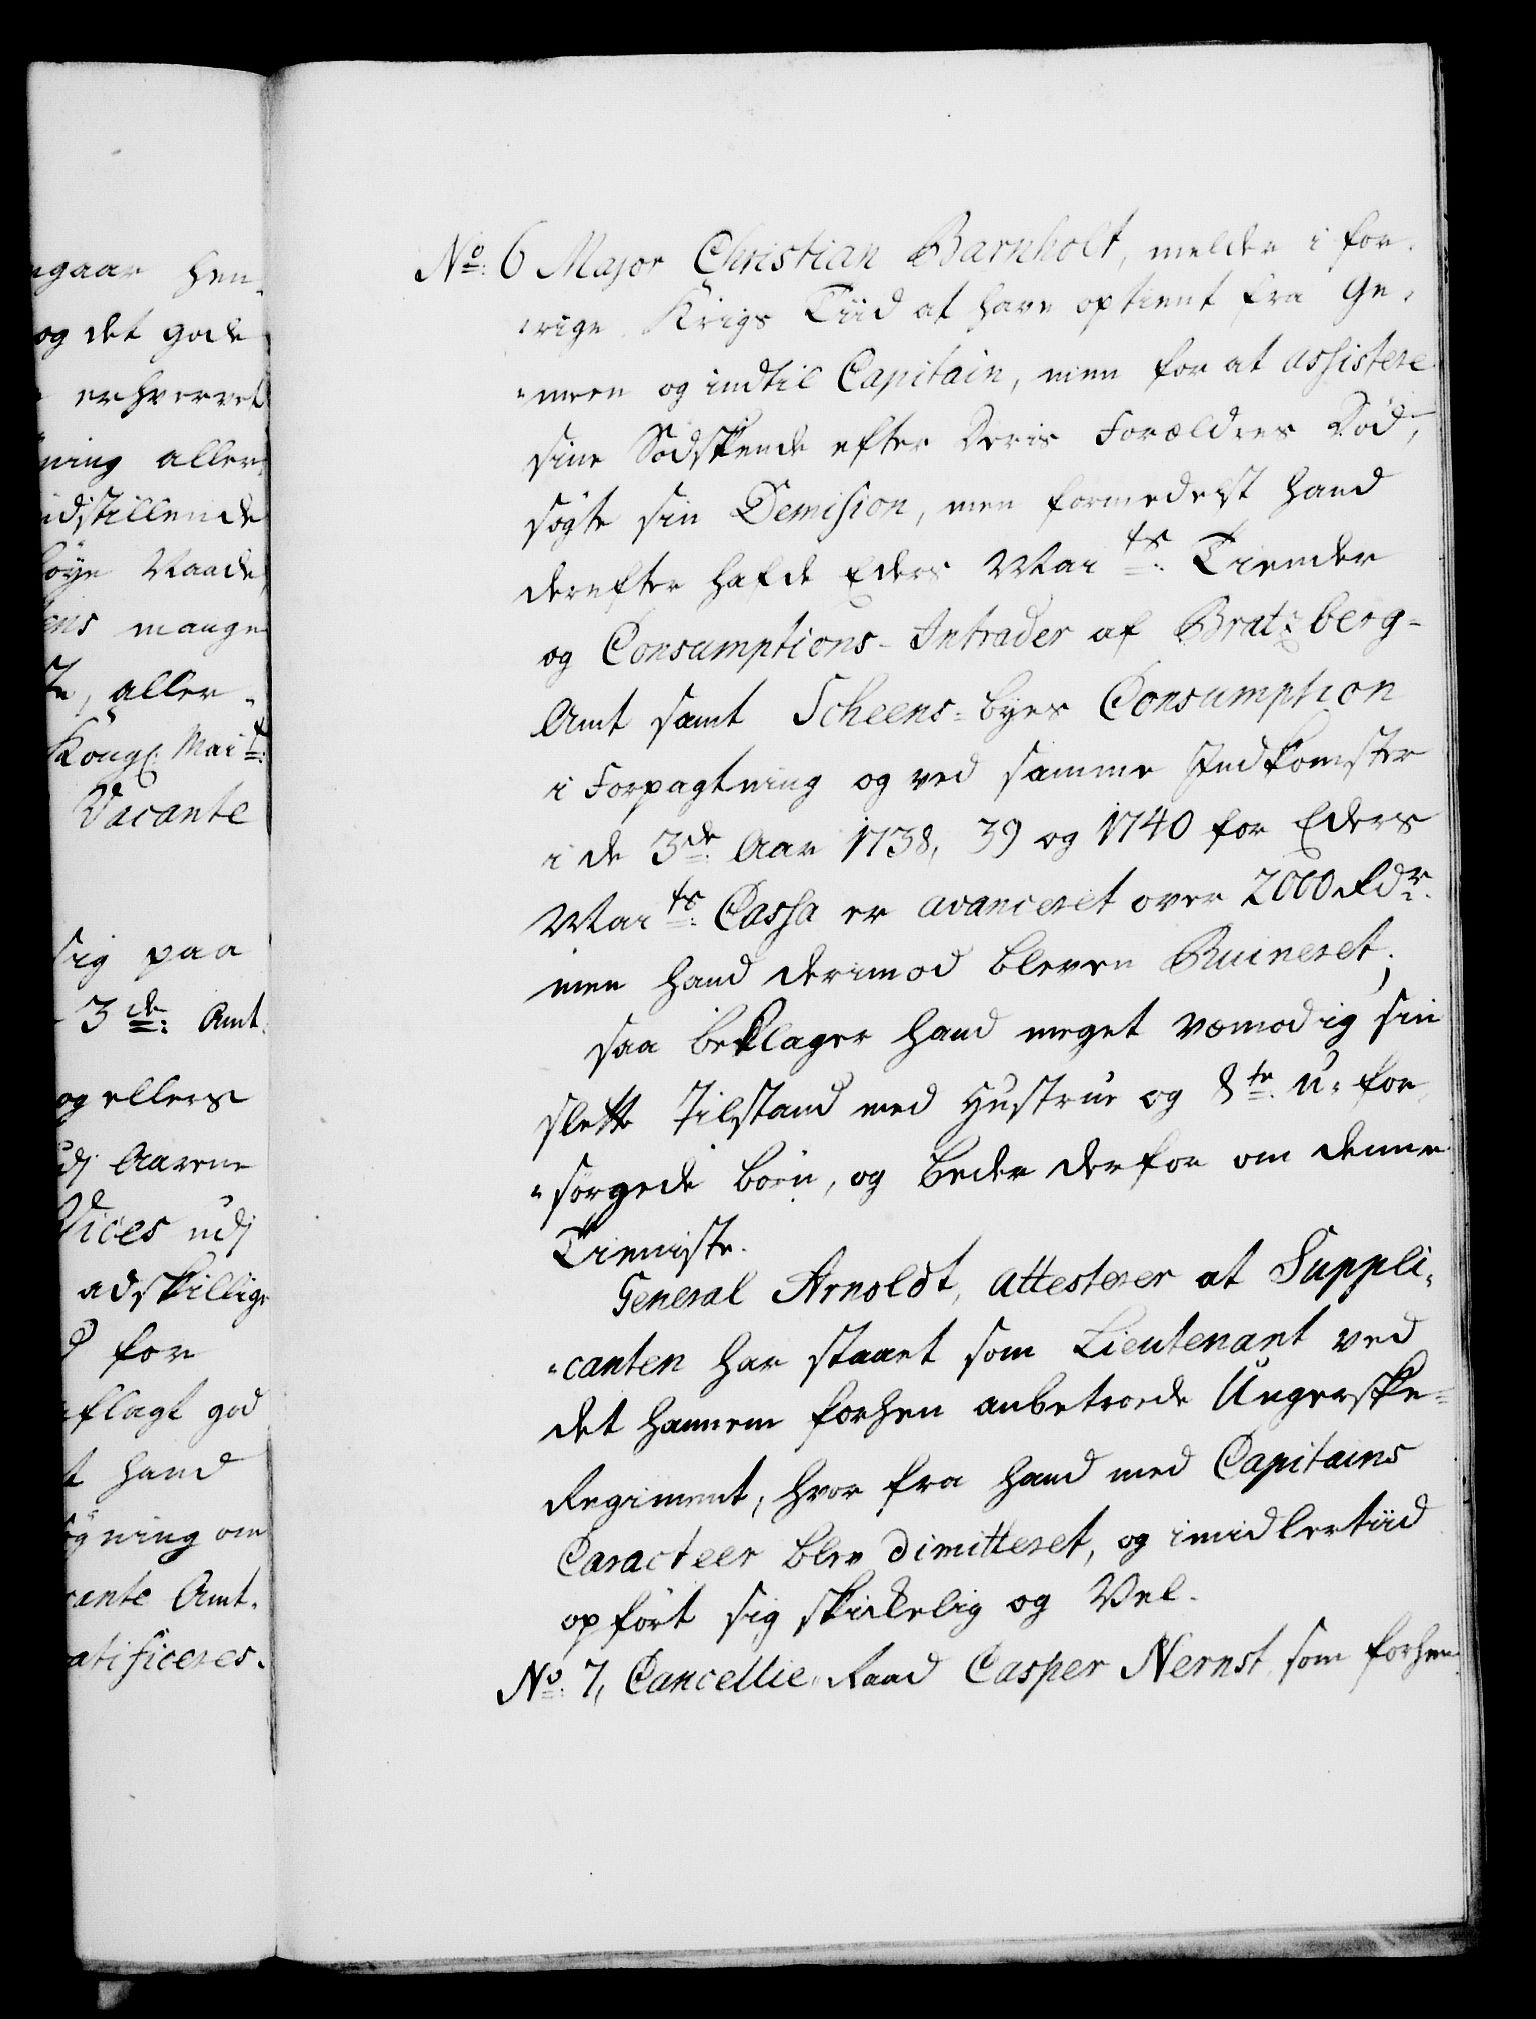 ngaar hen-
og det gode
erhvervet
ning aller-
idstillende
höye Naade
ens mange
te, aller-
Kongl. Mai.t:
Vacante
sig paa
3de: Amt.
og ellers
udj Aarene
Vices udj
adskillige
for
aflagt god
t hand
ögning om
cante Amt.
atificeres.
No: 6 Major Christian Barnholt, melder i for-
-rige Krigs Tiid at have optient fra Ge-
-meen og indtil Capitain, men for at assistere
sine Sødskende efter Deris Forældres Død,
søgte sin Demission, men formedelst hand
derefter hafde Eders Mai.ts: Tiender
og Consumptions-Intrader af Bratzberg-
Amt samt Scheens-byes Consumption
i Forpagtning og ved samme Indkomster
i de 3de: Aar 1738, 39 og 1740 for Eders
Mai.ts: Cassa er avanceret over 2000 Rdr.
men hand derimod bleven Ruineret;
saa beklager hand meget vemodig sin
slette Tilstand med Hustrue og 8te: u-for-
-sørgede børn, og beder derfor om denne
Tieniste.
General Arnoldt, attesterer at Suppli-
-canten har staaet som Lieutenant ved
det hannem forhen anbetroede Ungerske-
Regiment, hvor fra hand med Capitains
Caracteer blev dimitteret, og imidlertiid
opført sig skickelig og Vel.
No: 7, Cancellie-Raad Casper Nernst, som forhen